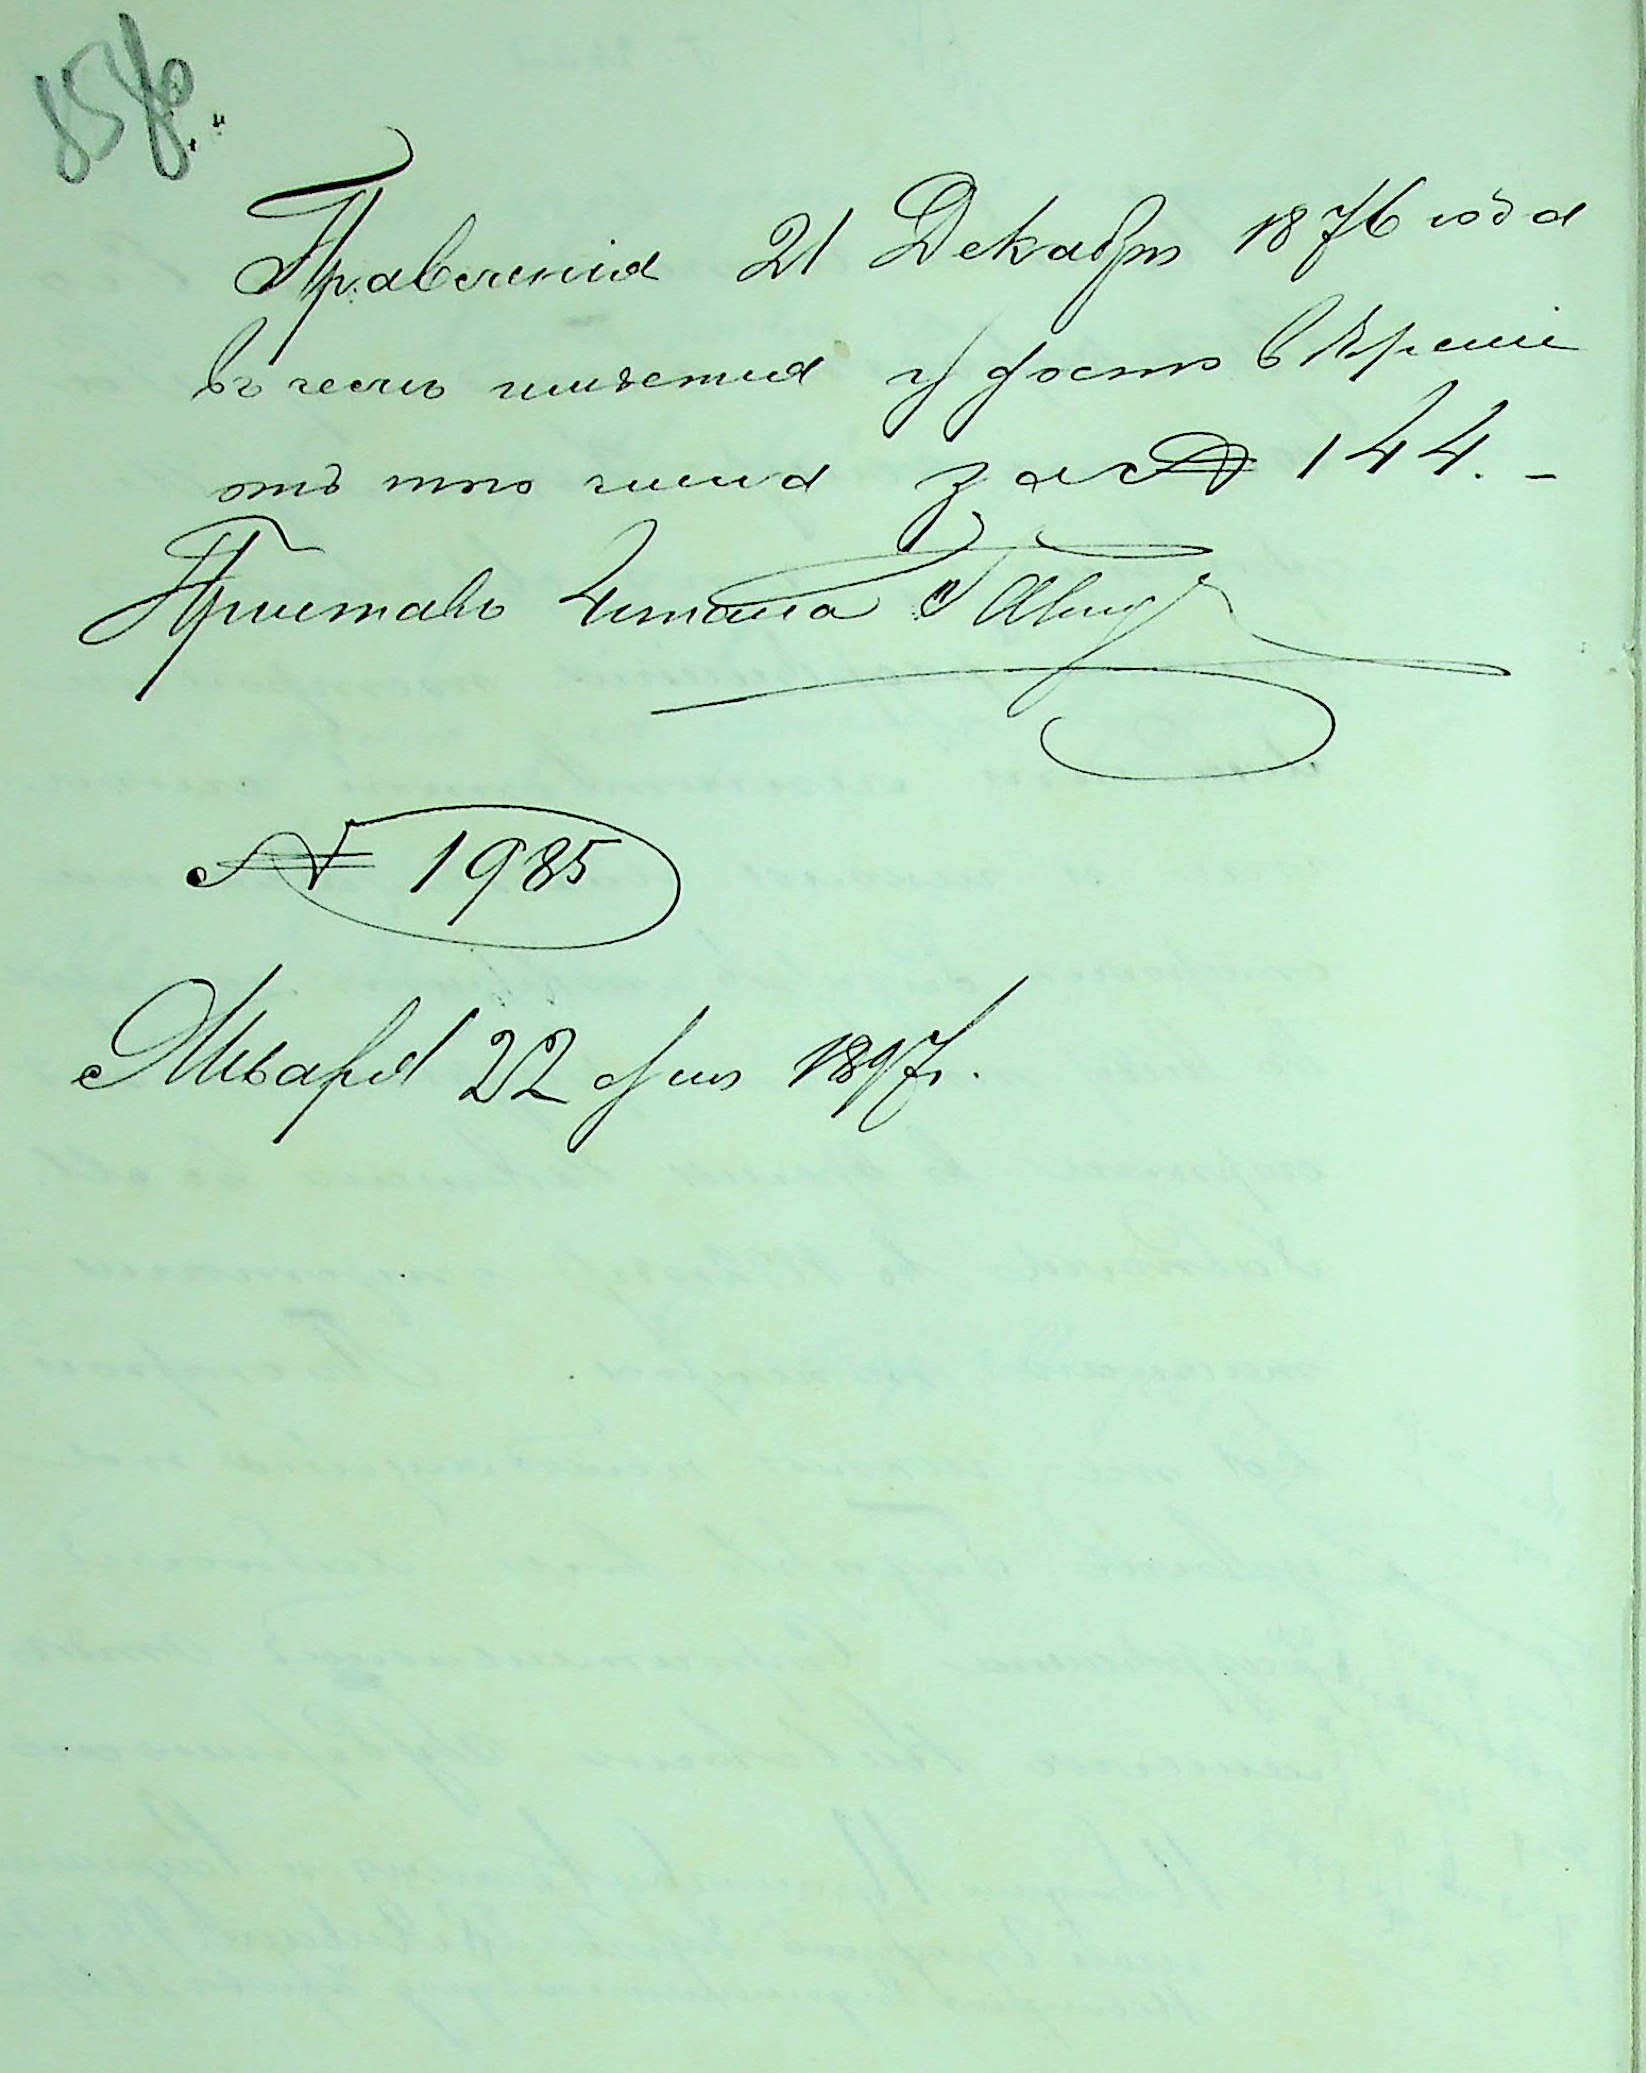 Правленія 21 Декабря 1876 года
въ чемъ имѣется удостовѣреніе
отъ того числа за № 144. –
Приставъ 4 стана
№ 1985
Января 22 дня 1897 г.